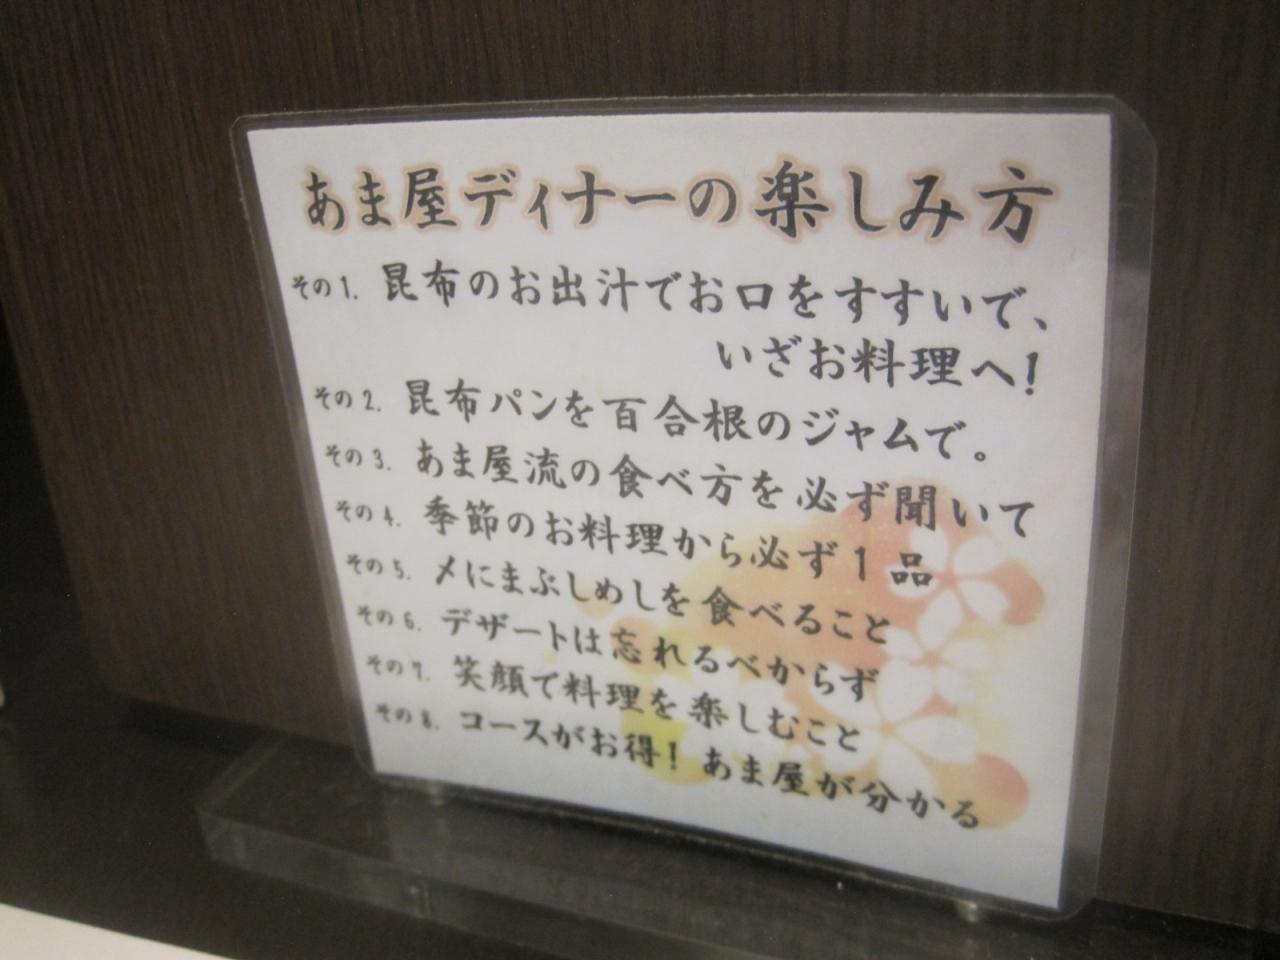 あま屋ディナーの楽しみ方
その1. 昆布のお出汁でお口をすすいで、
いざお料理へ!
その2. 昆布パンを百合根のジャムで。
その3. あま屋流の食べ方を必ず聞いて
その4. 季節のお料理から必ず1品
その5. 〆にまぶしめしを食べること
その6. デザートは忘れるべからず
その7. 笑顔で料理を楽しむこと
その8. コースがお得! あま屋が分かる